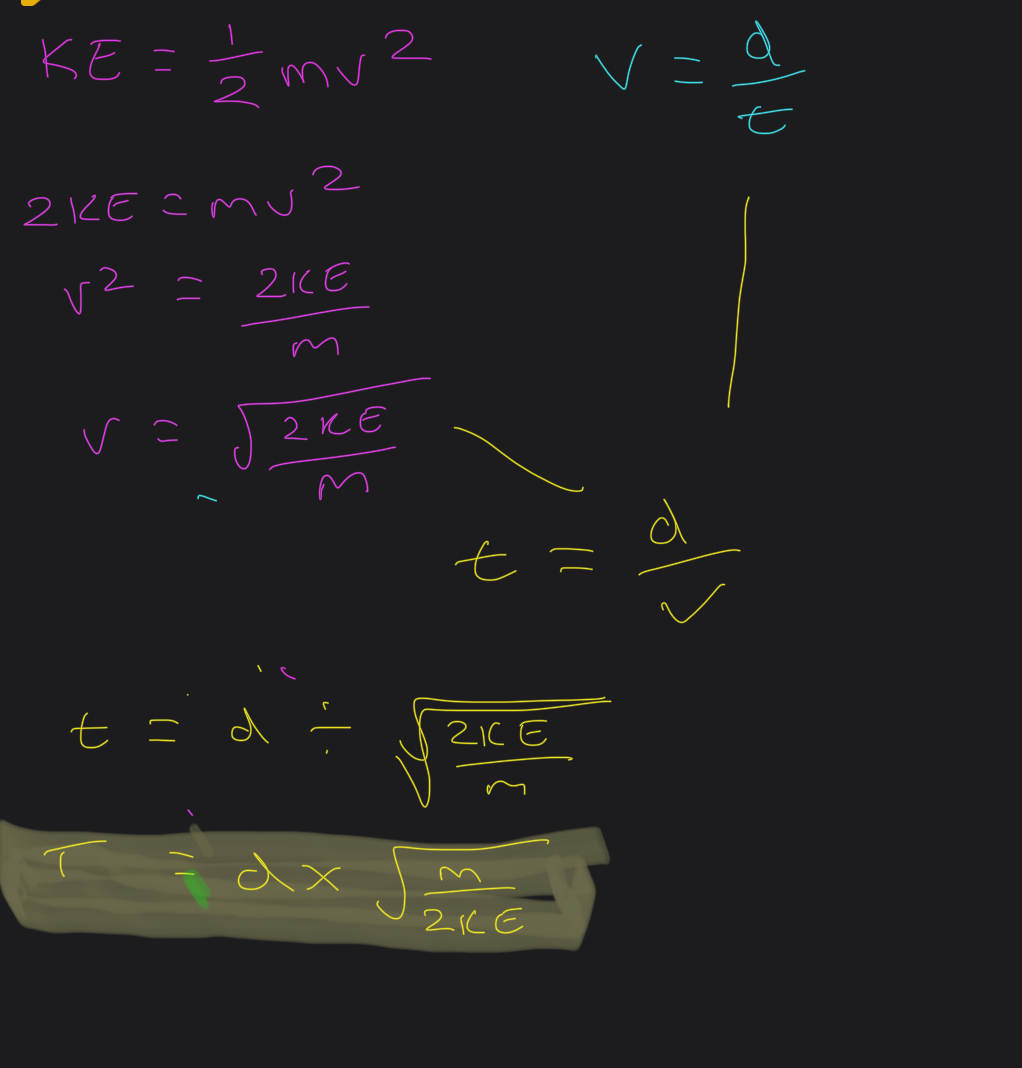 KE = 1/2 mv²
v = d/t
2KE = mv²
v² = 2KE/m
v = √(2KE/m)
t = d/v
t = d ÷ √(2KE/m)
T = d × √(m/2KE)